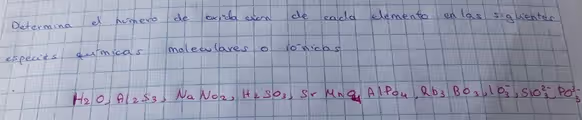 Determina el número de oxidacion de cada elemento en las siguientes
especies químicas moleculares o iónicas
H2O, Al2S3, NaNO2, H2SO3, Sr MnO4, AlPO4, Rb3BO3, IO3-, SiO3 2-, PO3 3-